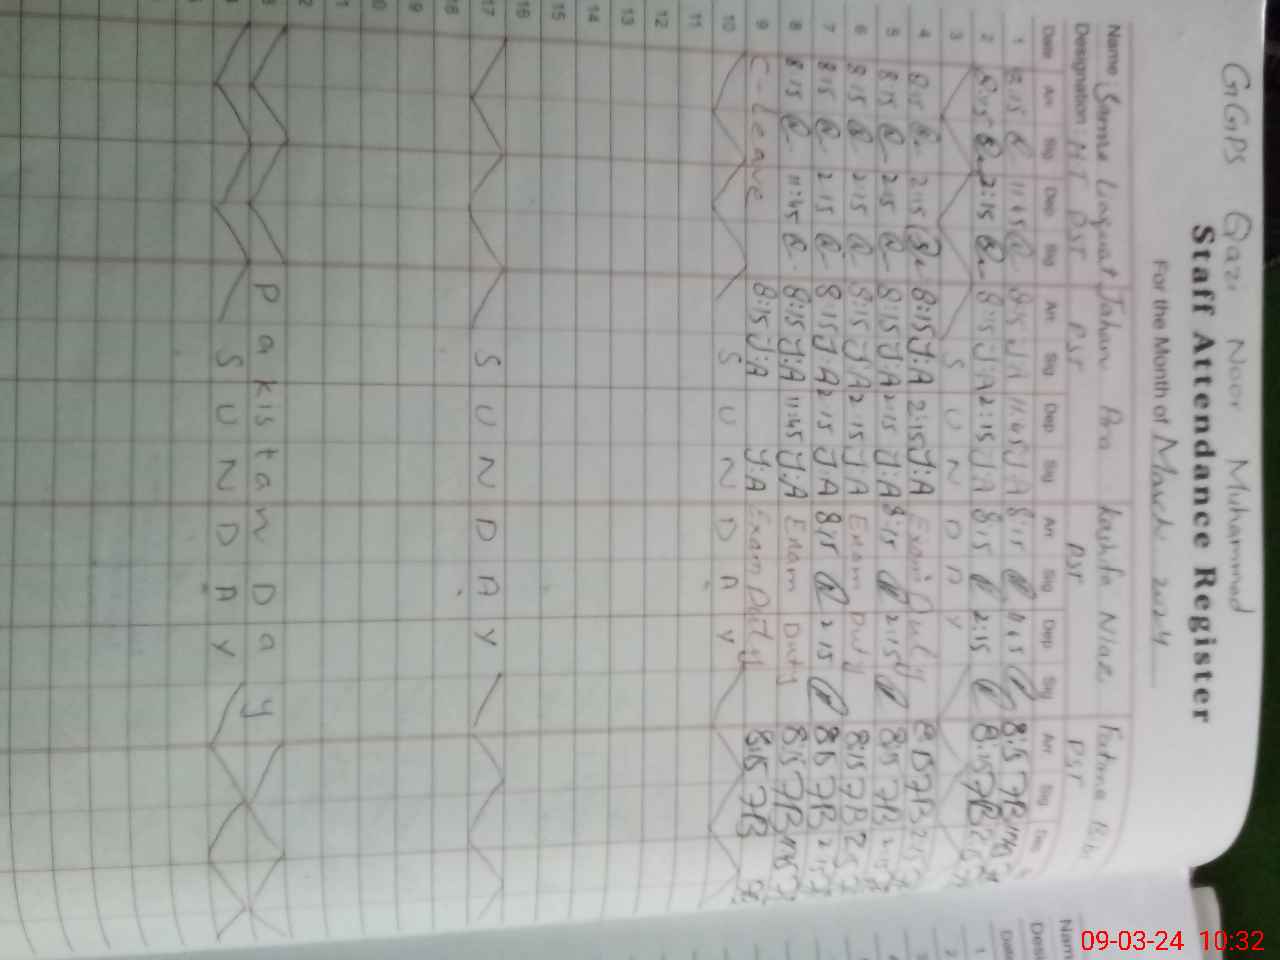 GGPS Qazi Noor Muhammad
Staff Attendance Register
For the Month of March 2024
Name Jahan Ara Kashfa Niaz Fatima Bibi
Designation: HT PST PST PST PST
Date Arr Sig Dep Sig Arr Sig Dep Sig Arr Sig Dep Sig Arr Sig Dep
1 8:15 11:45 8:15 J.A 11:45 J.A 8:15 11:45 8:15 FB 11:45
2 8:15 2:15 8:15 J.A 2:15 J.A 8:15 2:15 8:15 FB 2:15
3 SUNDAY
4 8:15 2:15 8:15 J.A 2:15 J.A Exam Duty 8:15 FB 2:15
5 8:15 2:15 8:15 J.A 2:15 J.A 8:15 2:15 8:15 FB 2:15
6 8:15 2:15 8:15 J.A 2:15 J.A Exam Duty 8:15 FB 2:15
7 8:15 2:15 8:15 J.A 2:15 J.A 8:15 2:15 8:15 FB 2:15
8 8:15 11:45 8:15 J.A 11:45 J.A Exam Duty 8:15 FB 11:45
9 C-Leave 8:15 J.A J.A Exam Duty 8:15 FB
10 SUNDAY
11
12
13
14
15
16
17 SUNDAY
18
19
Pakistan Day
SUNDAY
Nam
Desi
Date
1
2
09-03-24 10:32